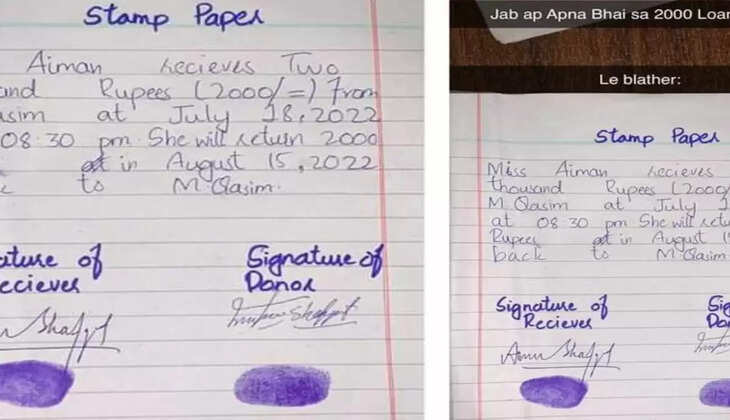 Stamp Paper
Aiman recieves Two
Rupees (2000/=) From
asim at July 18, 2022
08:30 pm. She will return 2000
in August 15, 2022
to M.Qasim.
ature of
eciever
Signature of
Donor
Jab ap Apna Bhai sa 2000 Loan
Le blather:
Stamp Paper
Miss Aiman recieves
thousand Rupees (2000/
M.Qasim at July 1
at 08:30 pm She will retu
Rupees in August 1
back to M.Qasim
Signature of
Reciever
Sig
Do